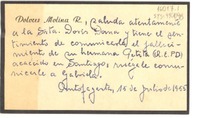 Dolores Molina R., saluda atentamente
a la Srta. Doris Dana y tiene el sen-
timiento de comunicarle el falleci-
miento de su hermana Petita (R.E.P.D)
acaecido en Santiago, ruégole comu-
nicarle a Gabriela.
Antofagasta, 16 de julio de 1955